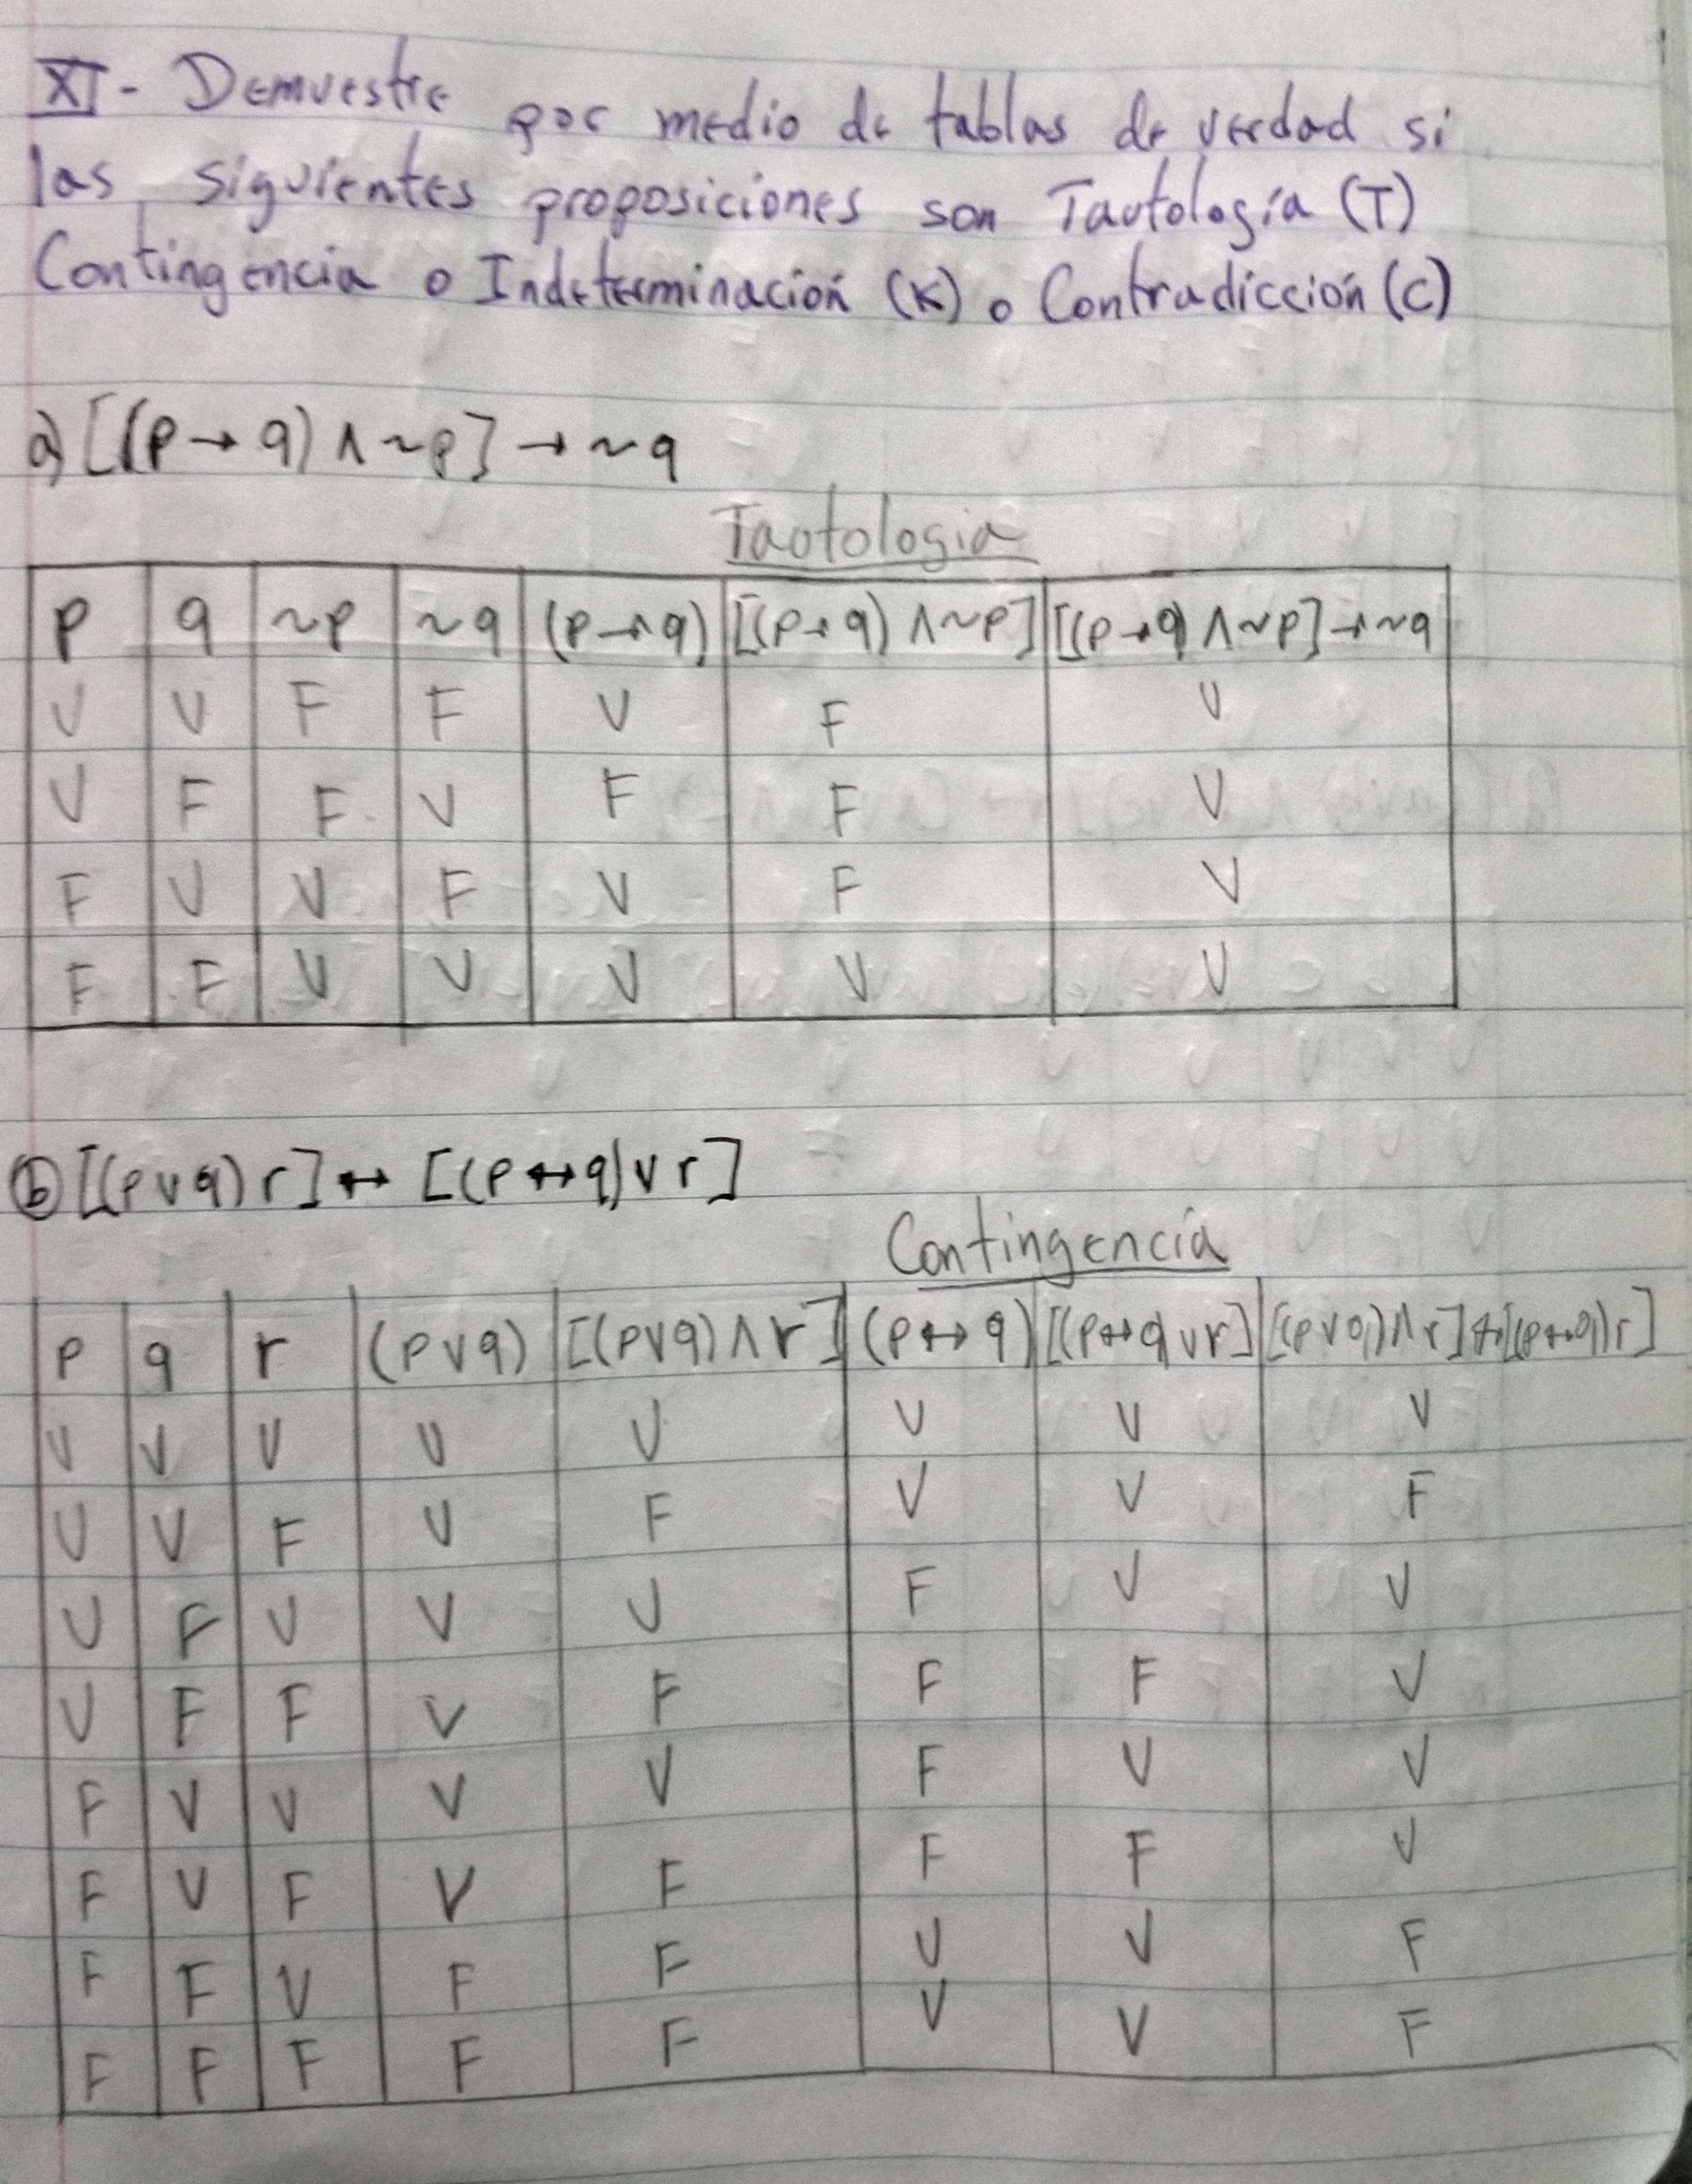 XI- Demuestre por medio de tablas de verdad si
las siguientes proposiciones son Tautología (T)
Contingencia o Indeterminación (K) o Contradicción (C)
a) [(p → q) ∧ ~p] → ~q
Tautologia
p q ~p ~q (p → q) [(p → q) ∧ ~p] [(p → q) ∧ ~p] → ~q
V V F F V F V
V F F V F F V
F V V F V F V
F F V V V V V
b) [(p ∨ q) r] ↔ [(p ↔ q) ∨ r]
Contingencia
p q r (p ∨ q) [(p ∨ q) ∧ r] (p ↔ q) [(p ↔ q) ∨ r] [(p ∨ q) ∧ r] ↔ [(p ↔ q) r]
V V V V V V V V
V V F V F V V F
V F V V V F V V
V F F V F F F V
F V V V V F V V
F V F V F F F V
F F V F F V V F
F F F F F V V F